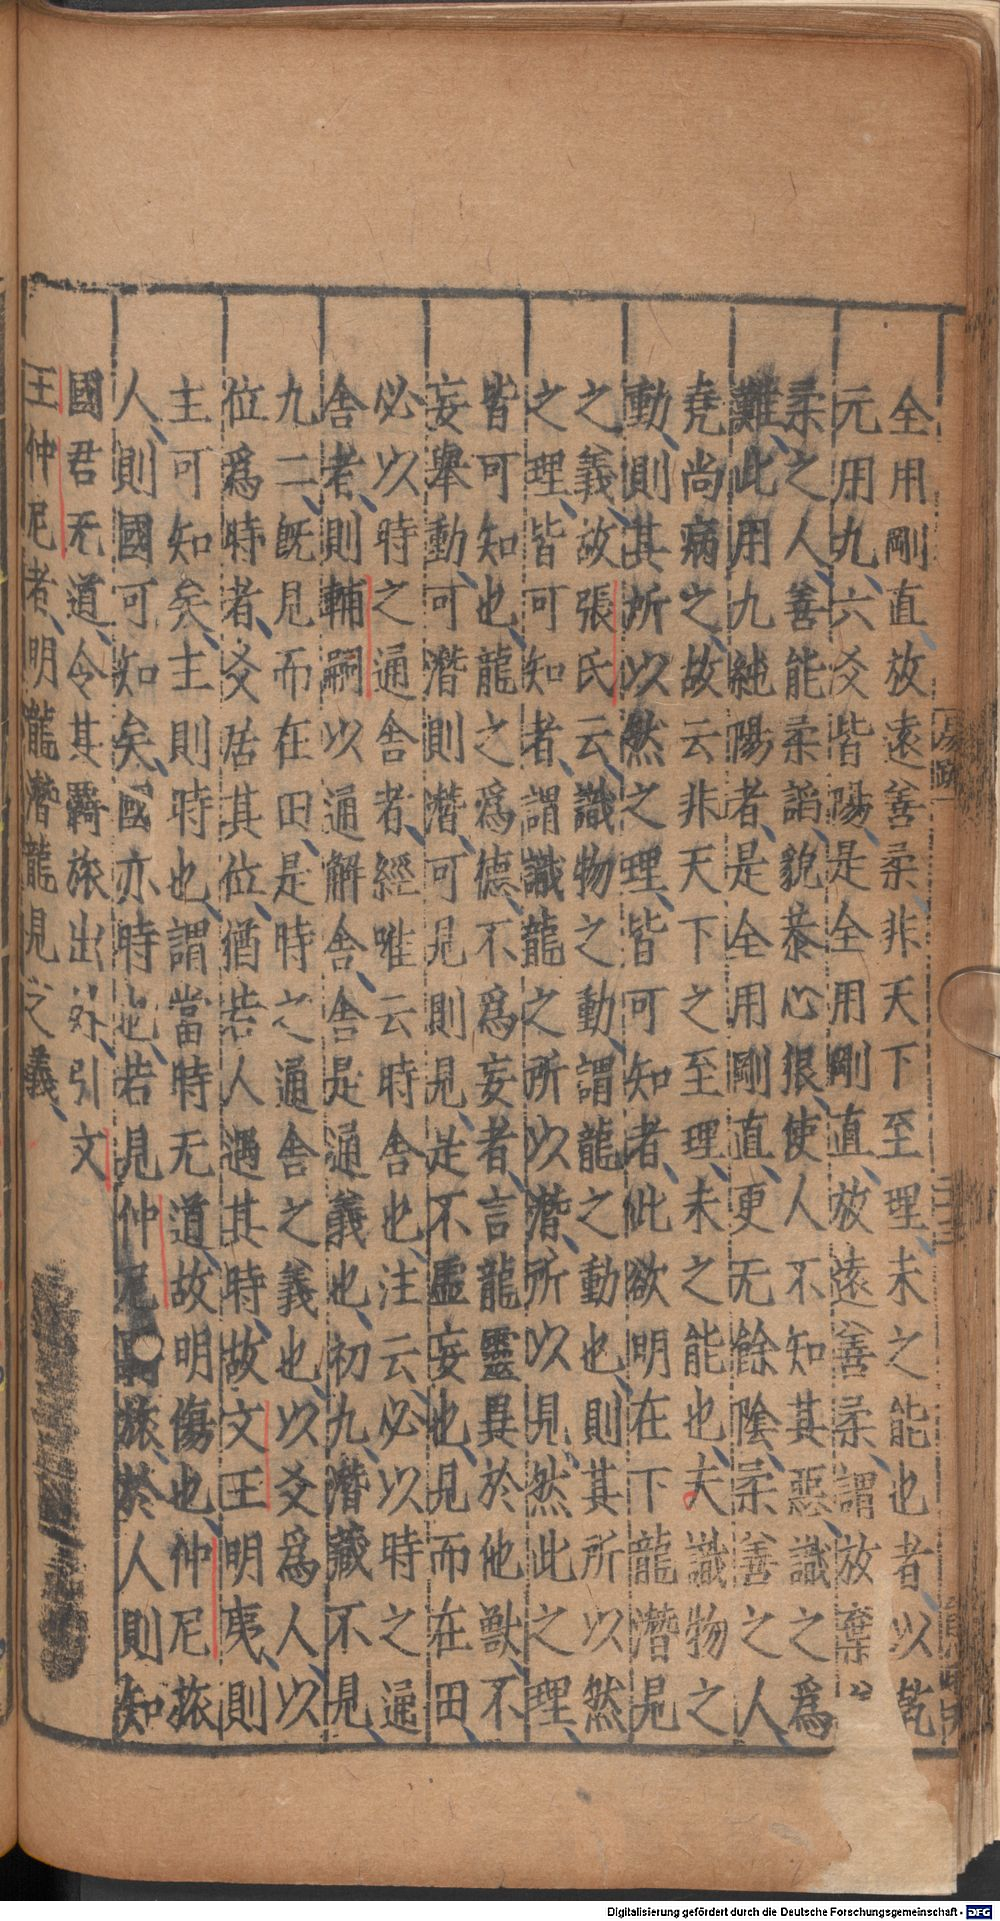 全用剛直放遠善柔非天下至理未之能也者以乾
元用九六爻皆陽是全用剛直放遠善柔謂放棄
柔之人善能柔諂貌恭心狠使人不知其惡識之為
難此用九純陽者是全用剛直更无餘陰柔善之人
堯尚病之故云非天下之至理未之能也夫識物之
動則其所以然之理皆可知者此欲明在下龍潛見
之義故張氏云識物之動謂龍之動也則其所以然
之理皆可知者謂識龍之所以潛所以見然此之理
皆可知也龍之為德不為妄者言龍靈異於他獸不
妄舉動可潛則潛可見則見是不虛妄也見而在田
必以時之通舍者經唯云時舍也注云必以時之通
舍者則輔嗣以通解舍舍是通義也初九潛藏不見
九二既見而在田是時之通舍之義也以爻為人以
位為時者爻居其位猶若人遇其時故文王明夷則
主可知矣主則時也謂當時无道故明傷也仲尼旅
人則國可知矣國亦時也若見仲尼羈旅於人則知
國君无道令其羈旅出外引文
王仲尼者明龍潛龍見之義
易疏一
十三
Digitalisierung gefördert durch die Deutsche Forschungsgemeinschaft - DFG